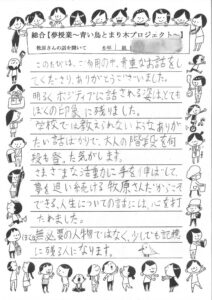 総合【夢授業～青い鳥とまり木プロジェクト～】
牧原さんの話を聞いて 6年 組
このたびは、ご多用の中、貴重なお話をし
てくださり、ありがとうございました。
明るくポジティブに話される姿はとても
ぼくの印象に残りました。
学校では教えられないようなありが
たい話ばかりで、大人の階段を何
段も登った気がします。
さまざまな活動に手を伸ばして、
夢を追いかける牧原さんだからこそ
できる、人生についての話には、心を打
たれました。
ぼくは無必要の人物ではなく、少しでも記憶
に残る人になります。